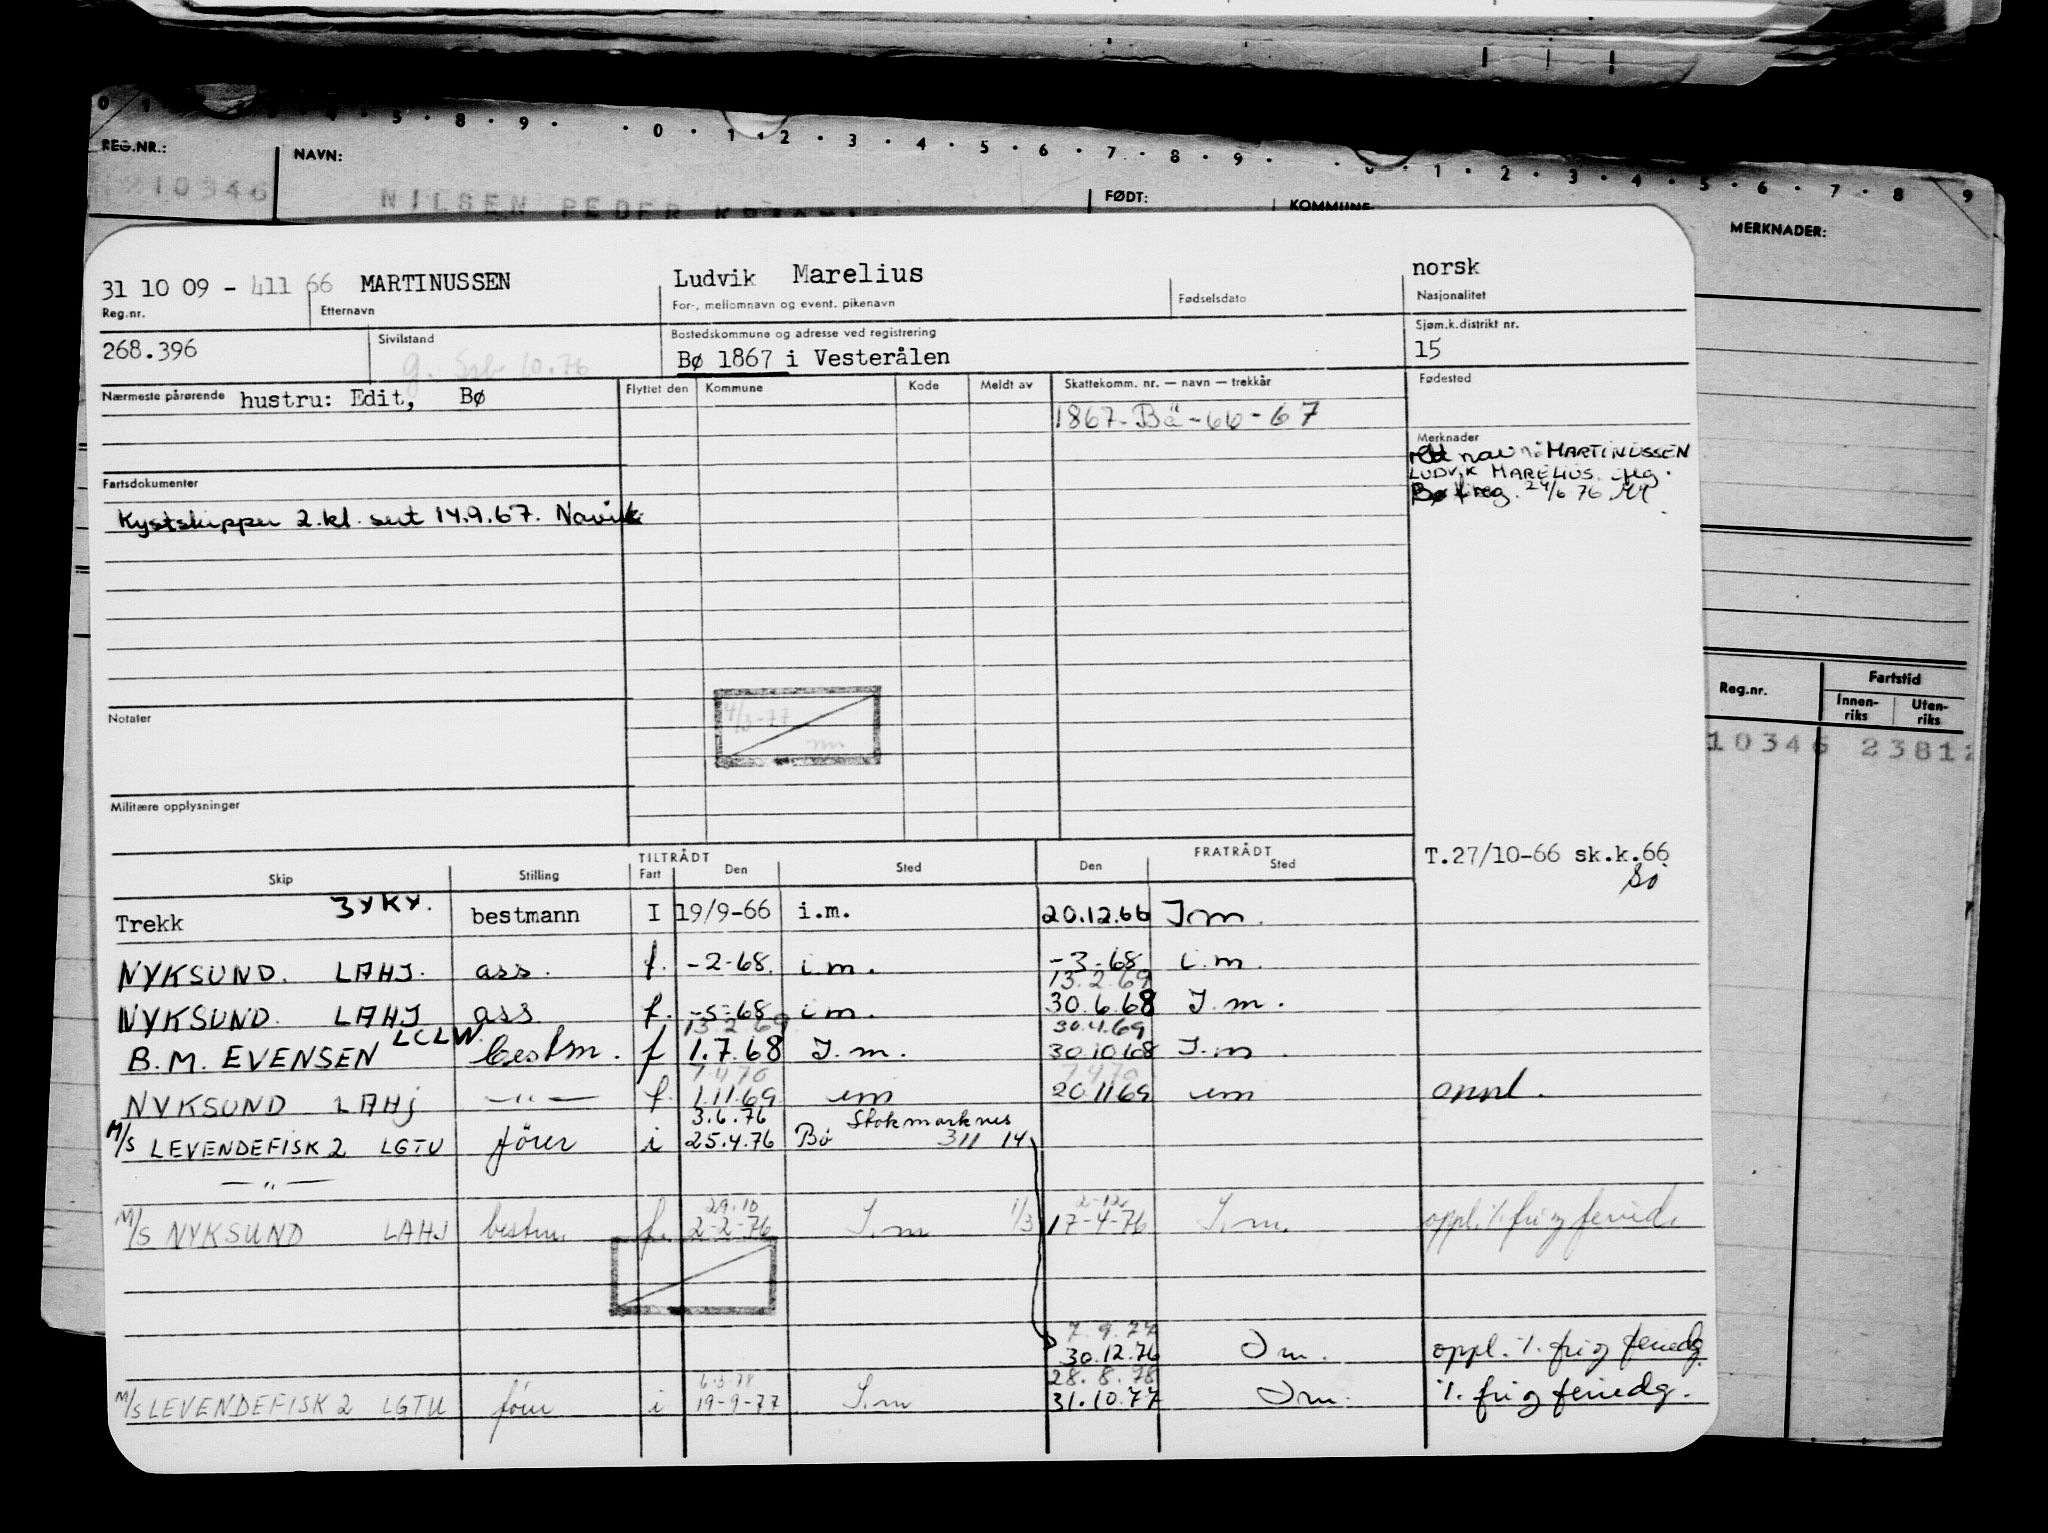 0 1 4 . 5 . 8 . 9 . . 0 . 1 . 2 . 3 . 4 . 5 . 6 . 7 . 8 . 9 . . 0 . 1 . 2 . 3 . 4 . 5 . 6 . 7 . 8 . 9
REG.NR.: NAVN: FØDT: KOMMUNE: MERKNADER:
10346 NILSEN PEDER
31 10 09 - 411 66 MARTINUSSEN Ludvik Marelius norsk
Reg.nr. Etternavn For-, mellomnavn og event. pikenavn Fødselsdato Nasjonalitet
268.396 Sivilstand Bostedskommune og adresse ved registrering Sjøm.k.distrikt nr.
g. 10.76 Bø 1867 i Vesterålen 15
Nærmeste pårørende hustru: Edit, Bø Flyttet den Kommune Kode Meldt av Skattekomm. nr. — navn — trekkår Fødested
1867-Bö-66-67
Merknader
rett navn: MARTINUSSEN
LUDVIK MARELIUS iflg.
Bø f.reg. 24/6 76
Fartsdokumenter
Kystskipper 2.kl. sert 14.9.67. Narvik
Reg.nr. Fartstid
Innen-riks Uten-riks
10346 2381
4/3-77
Notater
Militære opplysninger
T.27/10-66 sk.k.66
TILTRÅDT FRATRÅDT
Skip Stilling Fart Den Sted Den Sted
Trekk 3YKY. bestmann I 19/9-66 i.m. 20.12.66 I m.
NYKSUND. LAHJ. ass. f. -2-68. i.m. -3-68 i.m.
13.2.69
NYKSUND. LAHJ ass. f. -5-68 i.m. 30.6.68 I.m.
LCLW 13.2.69 30.4.69
B.M. EVENSEN bestm. f 1.7.68 I.m. 30.10.68 I.m.
7.4.70 7.4.70
NYKSUND LAHJ —"— f. 1.11.69 im 20.11.69 im oppl.
3.6.76 Stokmarknes
M/S LEVENDEFISK 2 LGTU förer i 25.4.76 Bö 311 14
—"—
29.10 2-12
M/S NYKSUND LAHJ bestm. f. 2-2-76 I.m 1/3 17-4-76 I.m. oppl. ./. fri og feried.
7.9.77
30.12.76 I m. oppl. ./. fri og feriedg.
6.3.78 28.8.78
M/S LEVENDEFISK 2 LGTU förer i 19-9-77 I.m 31.10.77 I m. ./. fri og feriedg.